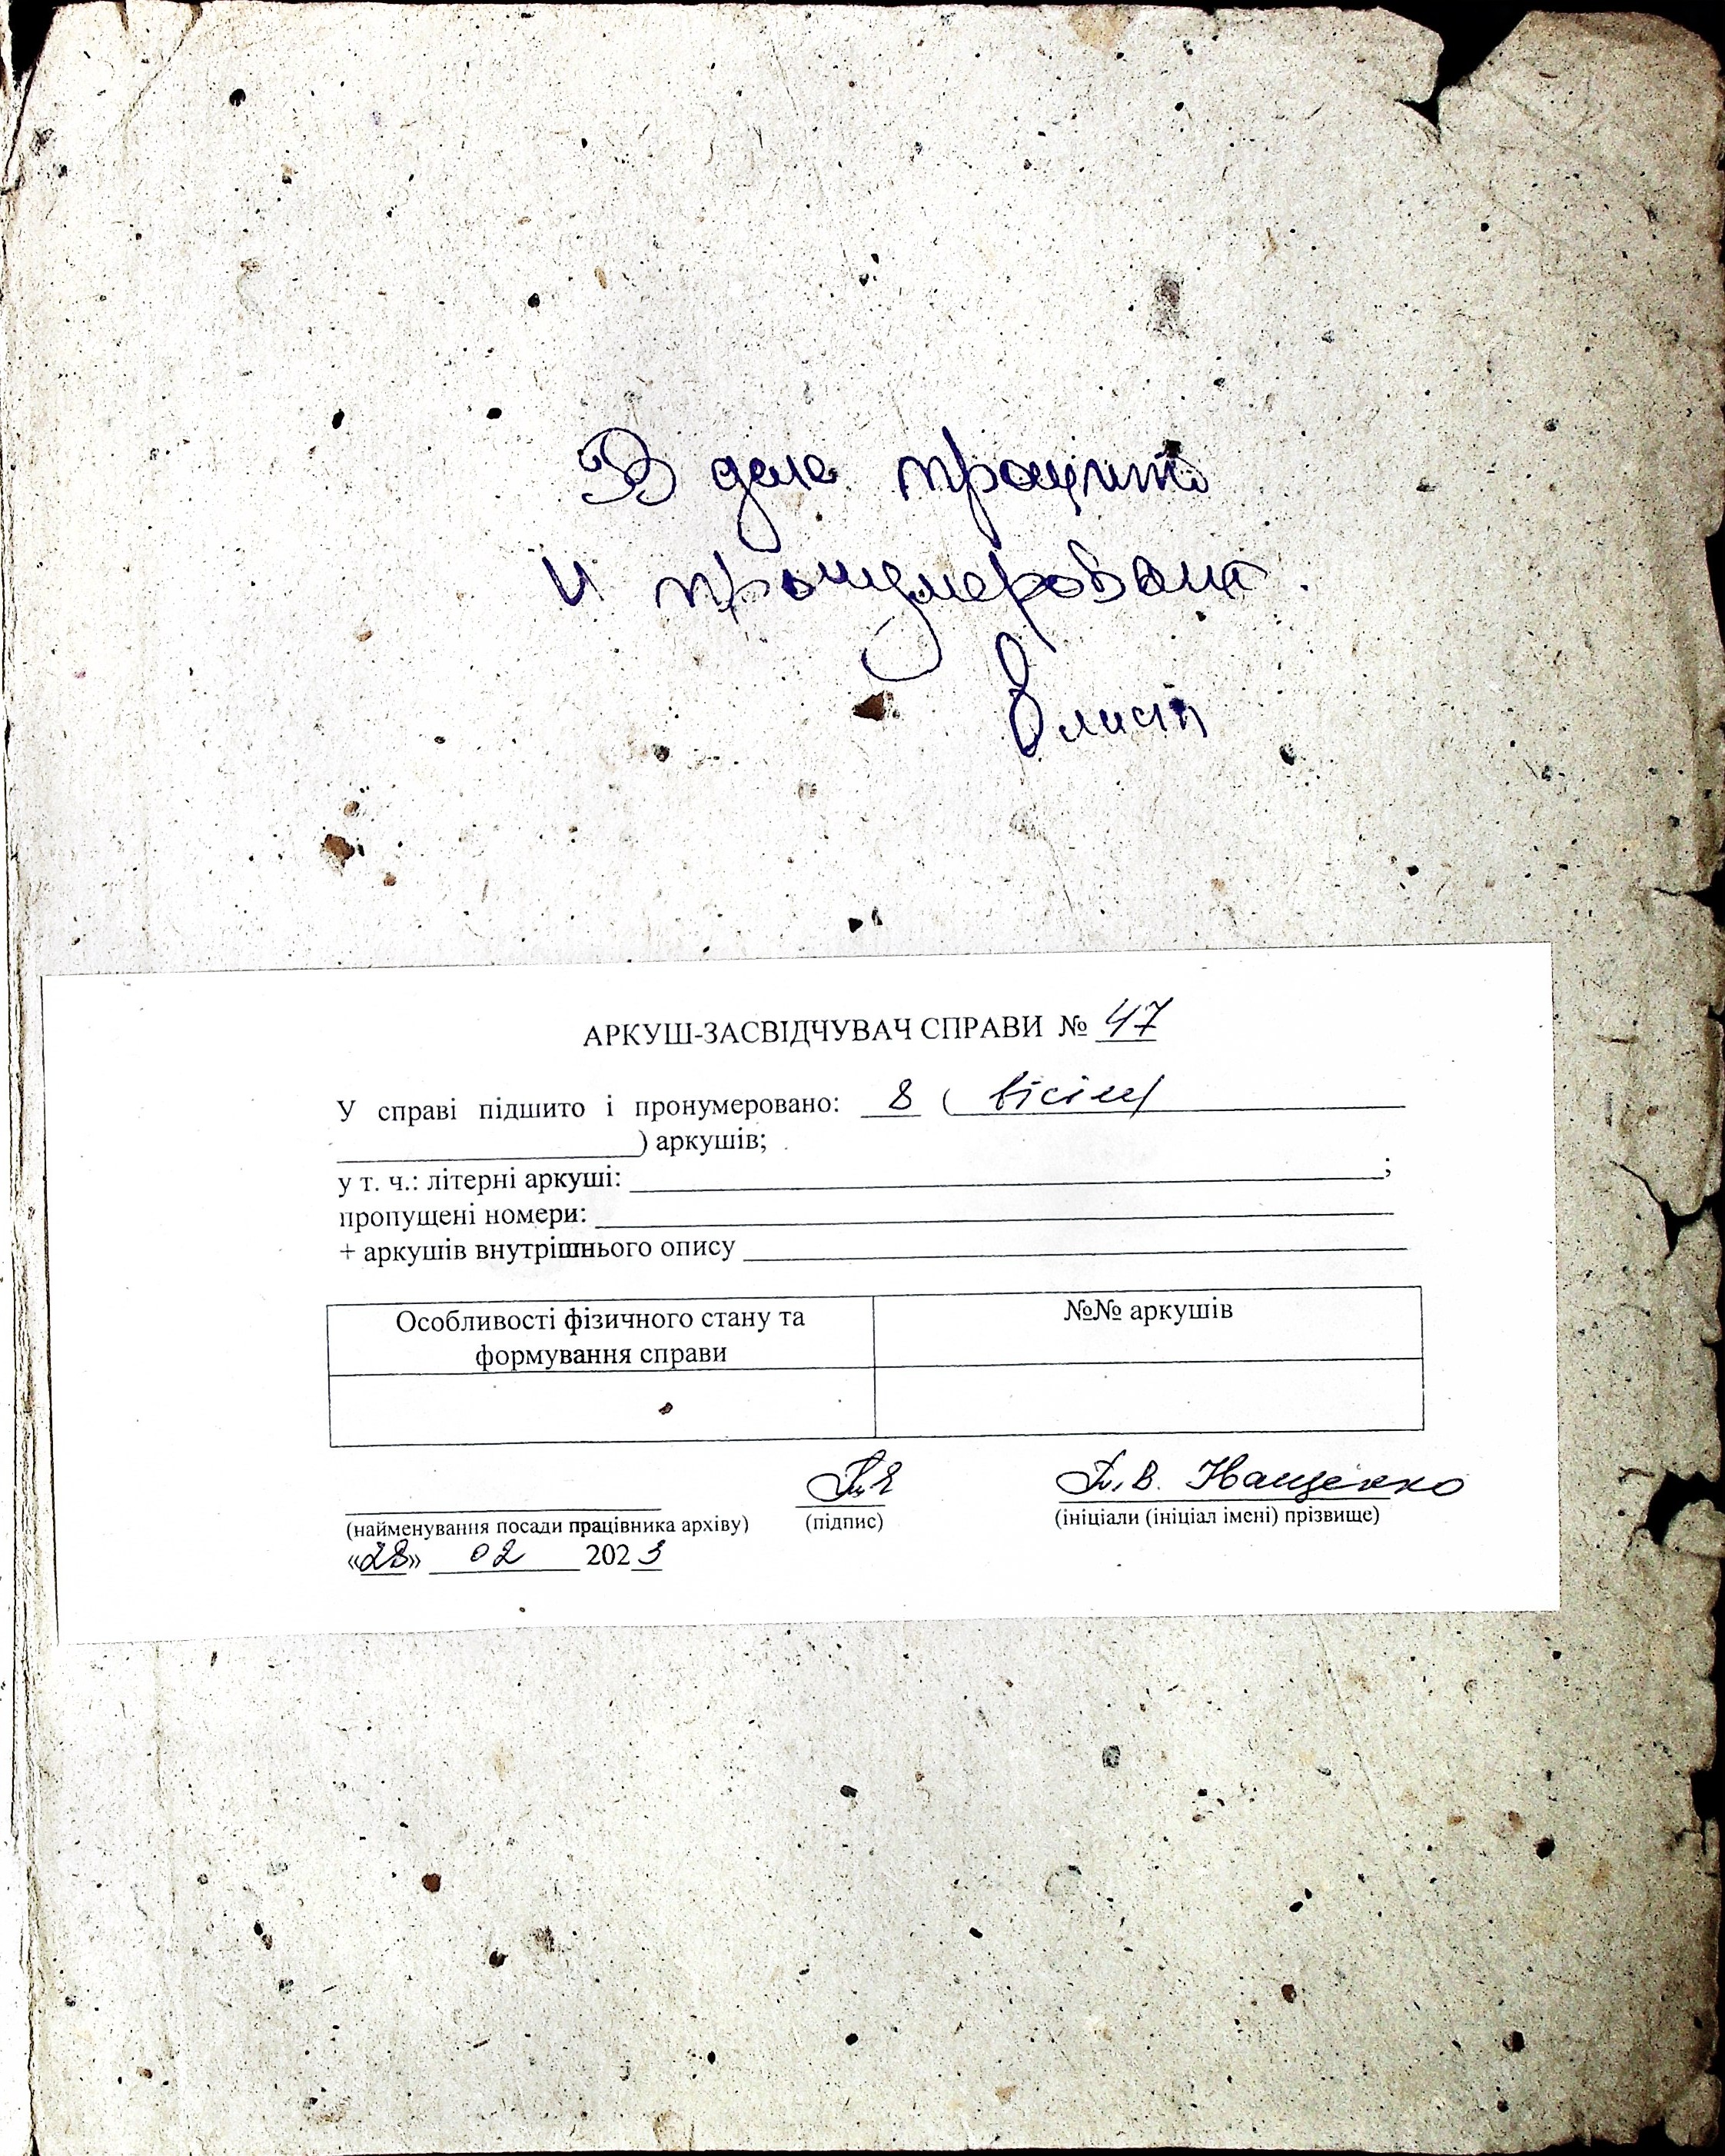 В деле прошито
и пронумеровано.
8 лист
АРКУШ-ЗАСВІДЧУВАЧ СПРАВИ № 47
У справі підшито і пронумеровано: 8 ( вісім
) аркушів;
у т. ч.: літерні аркуші: ;
пропущені номери:
+ аркушів внутрішнього опису
Особливості фізичного стану та
формування справи
№№ аркушів
В. Іващенко
(найменування посади працівника архіву) (підпис) (ініціали (ініціал імені) прізвище)
«28» 02 2023